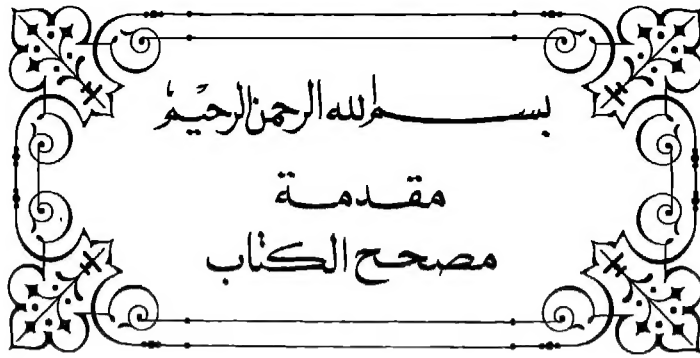 بسم الله الرحمن الرحيم
مقدمة
مصحح الكتاب